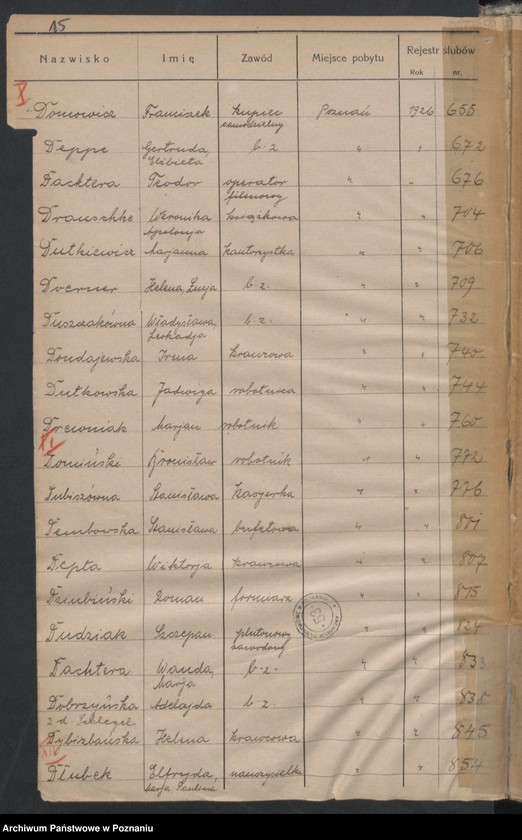 15
Nazwisko Imię Zawód Miejsce pobytu Rejestr ślubów
Rok nr.
X
Domowicz Franciszek kupiec Poznań 1926 655
samodzielny
Deppe Gertruda, b. z. " " 672
Elżbieta
Dachtera Teodor operator " " 676
filmowy
Drauschke Weronika książkowa " " 704
Apolonja
Dutkiewicz Marjanna kantorzystka " " 706
Doerner Helena, Lucja b. z. " " 709
Duszczakówna Władysława, b. z. " " 732
Leokadja
Dondajewska Irena krawcowa " " 740
Dutkowska Jadwiga robotnica " " 744
Drewniak Marjan robotnik " " 760
XI
Domiński Bronisław robotnik " " 772
Dubiszówna Stanisława kasjerka " " 776
Dembowska Stanisława bufetowa " " 801
Depta Wiktorja krawcowa " " 807
Dziubiński Roman formiarz " " 815
Dudziak Szczepan plutonowy " " 824
zawodowy
Dachtera Wanda, b. z. " " 833
Marja
Dobrzyńska Adelajda b. z. " " 838
z d. Schlegel
Dybizbańska Helena krawcowa " " 845
XII
Dłubek Elfryda, nauczycielka " " 854
Marja Paulina
Archiwum Państwowe w Poznaniu